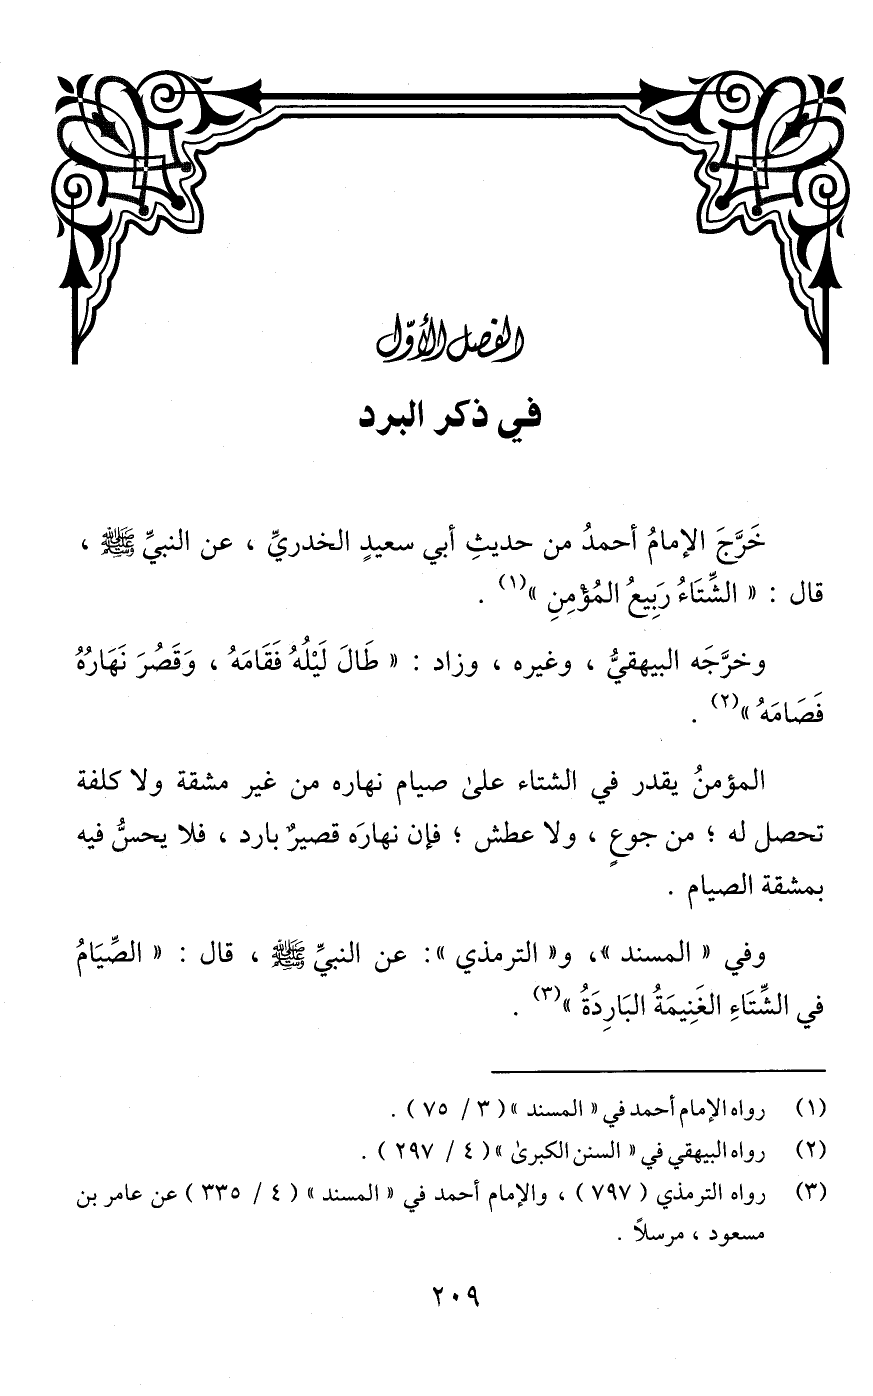 الفصل الأوّل
في ذكر البرد
خَرَّجَ الإمامُ أحمدُ من حديثِ أبي سعيدٍ الخدريِّ ، عن النبيِّ ﷺ ،
قال : « الشِّتَاءُ رَبِيعُ المُؤْمِنِ »(١) .
وخرَّجَه البيهقيُّ ، وغيره ، وزاد : « طَالَ لَيْلُهُ فَقَامَهُ ، وَقَصُرَ نَهَارُهُ
فَصَامَهُ »(٢) .
المؤمنُ يقدر في الشتاء علىٰ صيام نهاره من غير مشقة ولا كلفة
تحصل له ؛ من جوعٍ ، ولا عطش ؛ فإن نهارَه قصيرٌ بارد ، فلا يحسُّ فيه
بمشقة الصيام .
وفي « المسند »، و« الترمذي »: عن النبيِّ ﷺ ، قال : « الصِّيَامُ
في الشِّتَاءِ الغَنِيمَةُ البَارِدَةُ »(٣) .
(١) رواه الإمام أحمد في « المسند » ( ٣ / ٧٥ ) .
(٢) رواه البيهقي في « السنن الكبرىٰ » ( ٤ / ٢٩٧ ) .
(٣) رواه الترمذي ( ٧٩٧ ) ، والإمام أحمد في « المسند » ( ٤ / ٣٣٥ ) عن عامر بن
مسعود ، مرسلاً .
٢٠٩